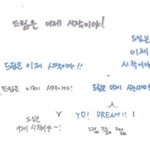 드림은 이제 시작이야!
드림은
이제
시작이야!
드림은 이제 시작이야!!
드림은 이제 시작이야!
드림은 이제 시작이야!
YO! DREAM!!
드림은
이제 시작이야~!